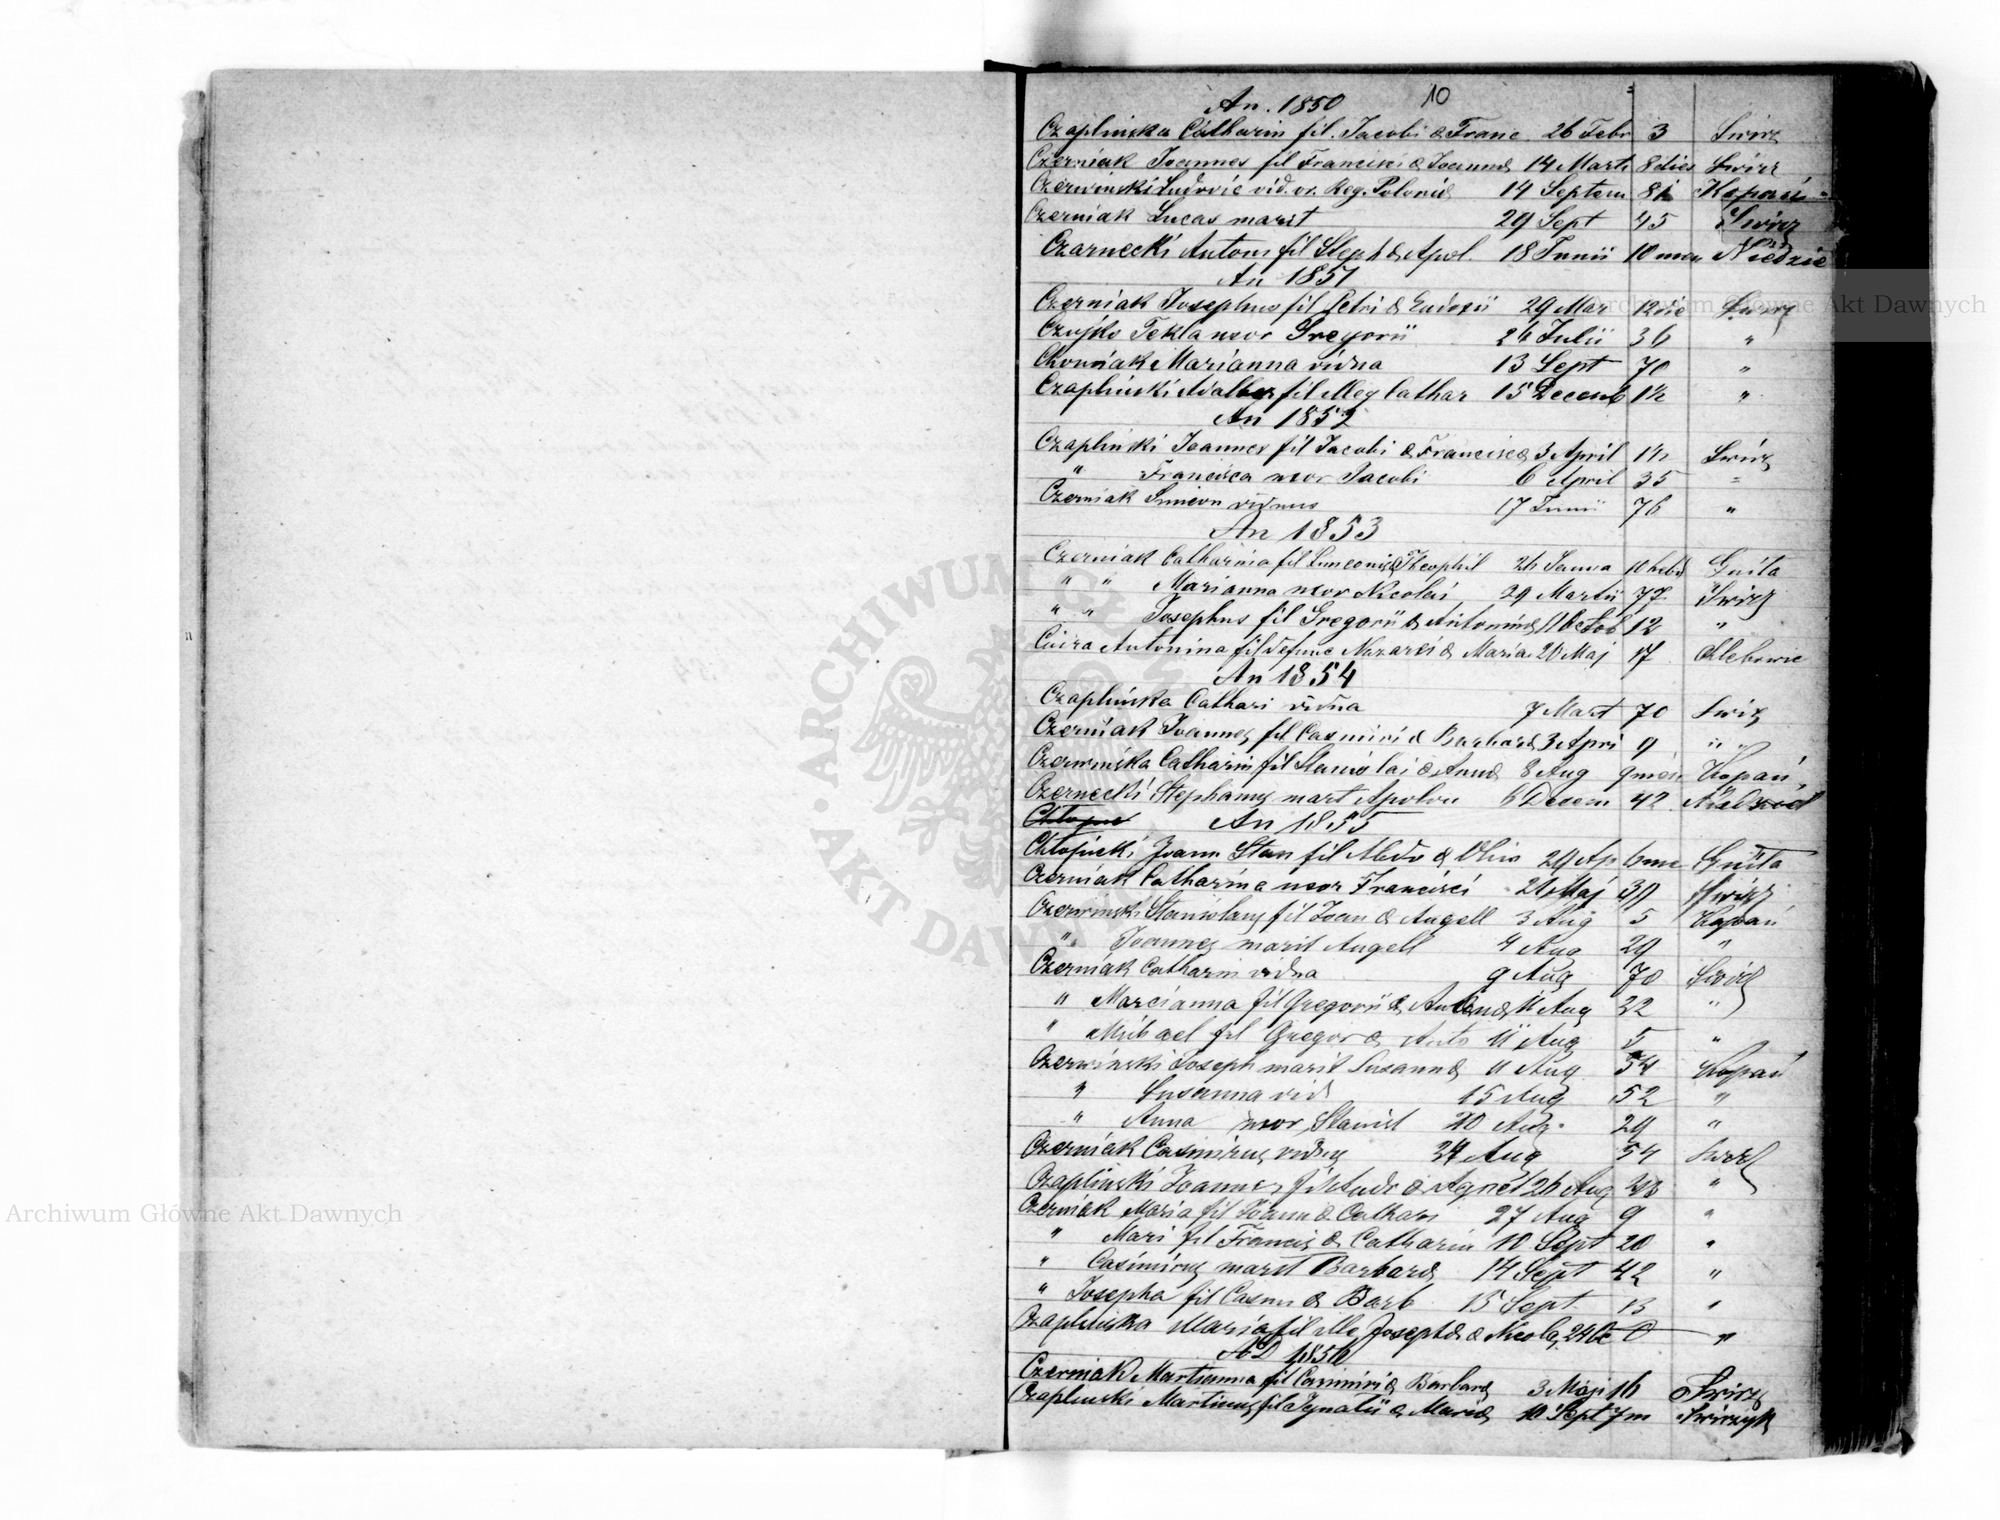 10
An. 1850
Czaplinska Catharin fil. Jacobi & Franc 26 Febr 3 Swirz
Czerniak Joannes fil Francisci & Joannæ 14 Marti 8 dies Swirz
Czerwinski Ludovic vid. ex Reg. Poloniæ 14 Septem 81 Kopań
Czerniak Lucas marit 29 Sept 45 Swirz
Czarnecki Anton fil Steph & Apol. 18 Junii 10 men Niedzie
An 1851
Czerniak Josephus fil Petri & Eudoxii 29 Mar 12 die Swirz
Czujko Tekla uxor Gregorii 26 Julii 36 "
Marianna vidua 13 Sept 70 "
Czaplinski Adalber fil illeg Cathar 15 Decemb 1½ "
An 1852
Czaplinski Joannes fil Jacobi & Franciscæ 3 April 1½ Swirz
" Francisca uxor Jacobi 6 April 35 "
Czerniak Simeon viduus 17 Junii 76 "
An 1853
Czerniak Catharina fil Simeonis & Theophil 26 Janua 10 hebd Gnita
" " Marianna uxor Nicolai 29 Martii 77 Swirz
" " Josephus fil Gregorii & Antoninæ 1 Octob 12 "
Antonina fil defunc Nazarii & Maria 20 Maj 17 Chlebowic
An 1854
Czaplinska Cathari vidua 7 Mart 70 Swirz
Czerniak Joannes fil Casimiri & Barbaræ 3 Apri 9 " "
Czerwinska Catharin fil Stanislai & Annæ 8 Aug 9 men Kopań
Czarnecki Stephanus marit Apolon 6 Decem 42 Niedziel
An 1855
Chłopicki Joann Stan fil 29 Ap 6 me Gnita
Czerniak Catharina uxor Francisci 26 Maj 30 Swirz
Czerwinski Stanislaus fil Joan & Angell 3 Aug 5 Kopań
" Joannes marit Angell 4 Aug 29 "
Czerniak Catharin vidua 9 Aug 70 Swirz
" Marcianna fil Gregorii & Antoninæ 11 Aug 22 "
" Michael fil Gregor & Anto 11 Aug 5 "
Czerwinski Joseph marit Susannæ 11 Aug 54 Kopań
" Susanna vid 15 Aug 52 "
" Anna uxor Stanisl 20 Aug. 29 "
Czerniak Casimirus viduus 24 Aug 54 Swirz
Czaplinski Joannes fil & Agnet 26 Aug "
Czerniak Maria fil Joann & Cathari 27 Aug 9 "
" Mari fil Francis & Catharin 10 Sept 20 "
" Casimirus marit Barbaræ 14 Sept 42 "
" Josepha fil Casim & Barb 15 Sept. 13 "
Czaplinska Maria fil Josephæ & Nicola 0 "
AD 1856
Czerniak Martianna fil Casimiri & Barbaræ 3 Maji 16 Swirz
Czaplinski Martinus fil Ignatii & Mariæ 10 Sept 7 m Swirzyk
Archiwum Główne Akt Dawnych
Archiwum Główne Akt Dawnych
ARCHIWUM GŁÓWNE AKT DAWNYCH